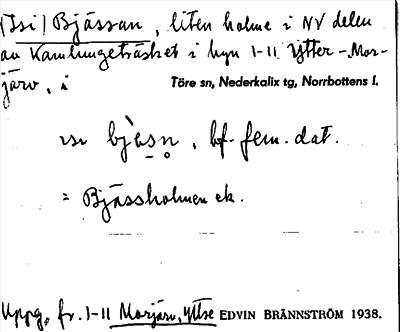 (Isi) Bjässan, liten holme i NV delen
av Kamlungeträsket i byn 1-11 Ytter-Mor-
järv, i Töre sn, Nederkalix tg, Norrbottens l.
bjäsn, bf. fem. dat.
= Bjässholmen ek.
Uppg. fr. 1-11 Morjärv, Yttre EDVIN BRÄNNSTRÖM 1938.